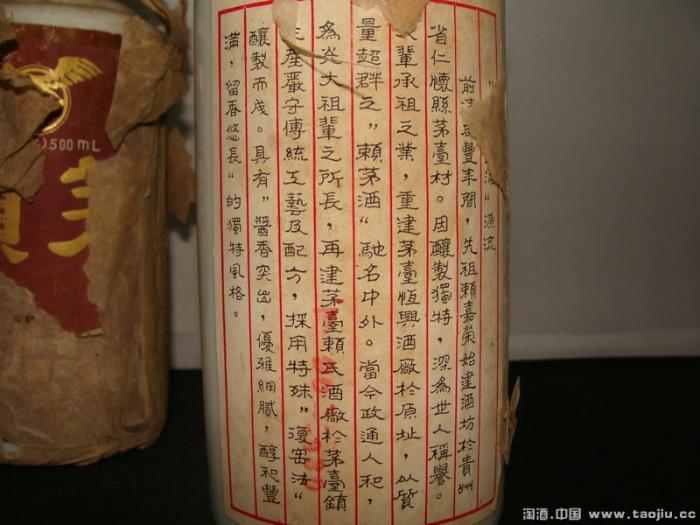 酒"源流
前清 豐年間，先祖賴嘉榮始建酒坊於貴州
省仁懷縣茅臺材。因釀製獨特，深為世人稱譽。
輩承祖之業，重建茅臺恆興酒廠於原址，以質
量超群之"賴茅酒"馳名中外。當今政通人和，
為光大祖輩之所長，再建茅臺賴氏酒廠於茅臺鎮
產嚴守傳統工藝及配方，採用特殊"復窖法"
釀製而成。具有"醬香突出，優雅細膩，醇和豐
滿，留香悠長"的獨特風格。
500 mL
淘酒.中国 www.taojiu.cc